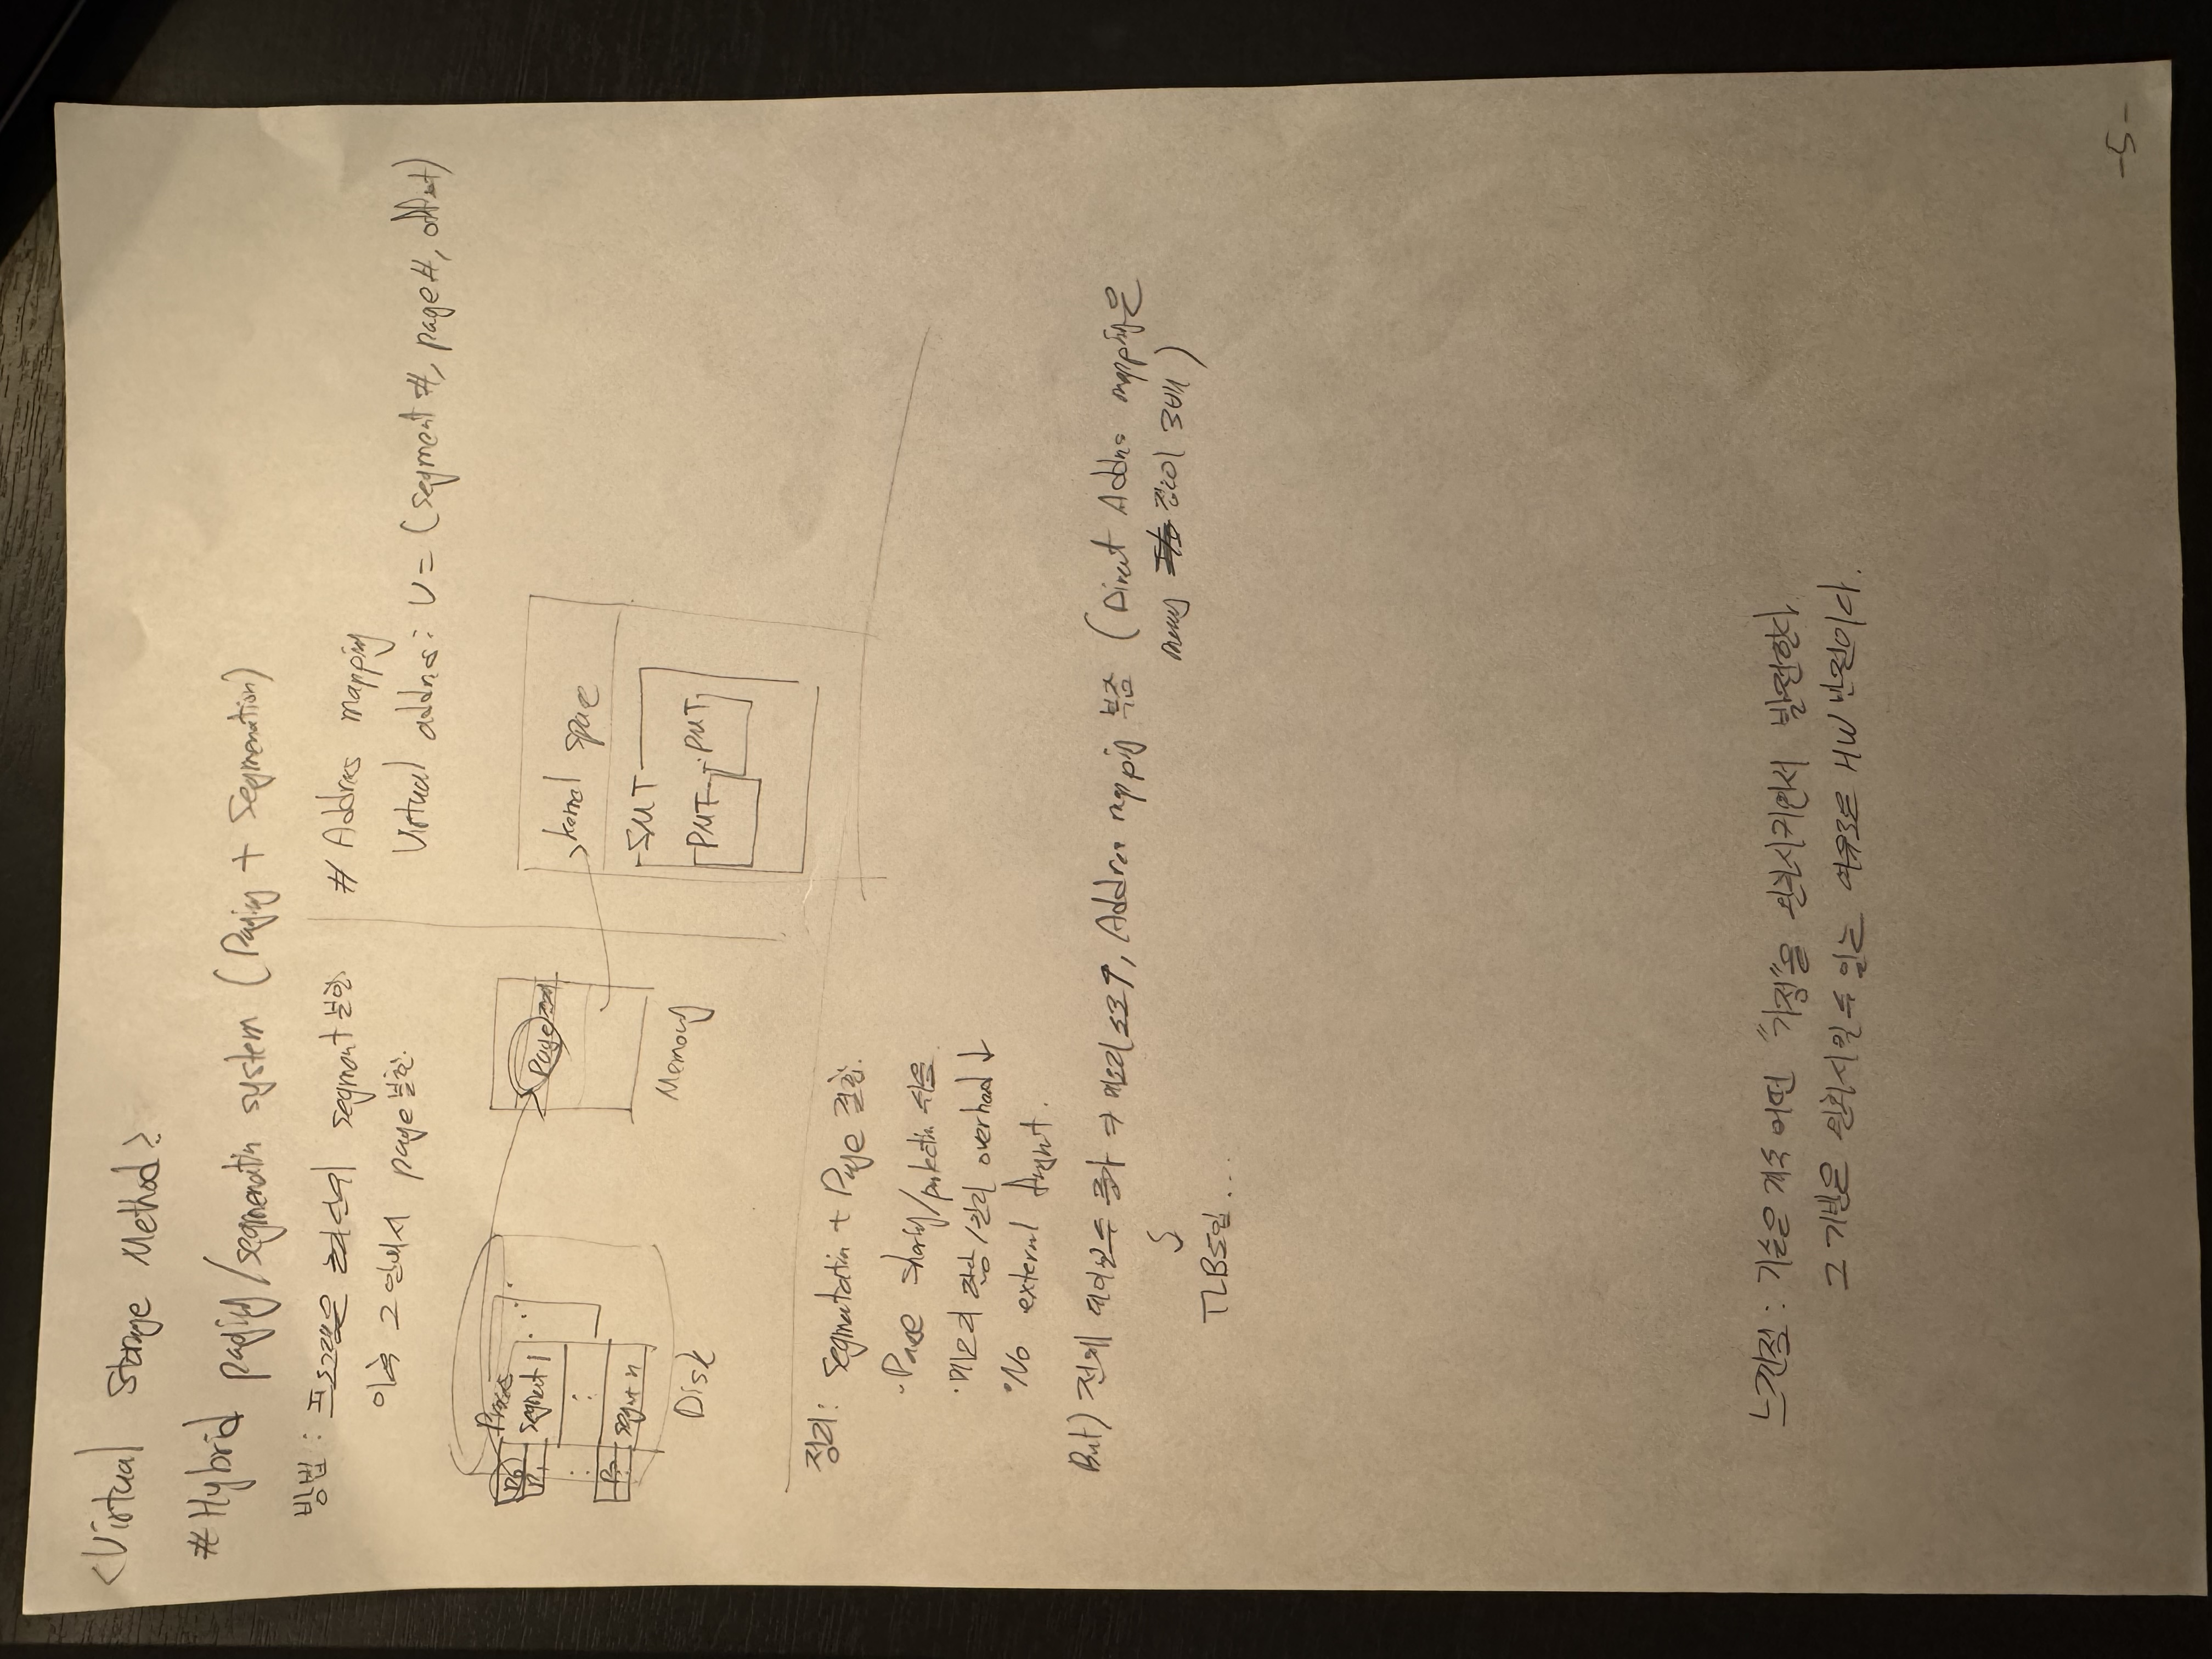 <Virtual Storage Method>
# Hybrid paging/segmenatin system (Paging + Segmenation)
방법 : 프로그램은 논리단위 segment 분할
이후 그 안에서 page 분할.
Process
P0
P1
segment 1
:
segmt n
Disk
Page
Memory
# Address mapping
Virtual addres : V = (segment #, page #, offset)
kernel space
SMT
PMT PMT
정리 : segmentatin + Page 결합.
· Page sharing/protectin 쉬움
· 메모리 할당/관리 overhead ↓
· No external fragmt.
But) 전체 테이블 수 증가 → 메모리 소모↑, Address mapping 복잡 (Direct Addres mapping은
memory 접근이 3배)
TLB도입 ...
느낀점 : 기술은 계속 어떤 "가정"을 완화시키면서 발전한다.
그 기반은 완화시킬 수 있는 HW 발전이다.
-5-